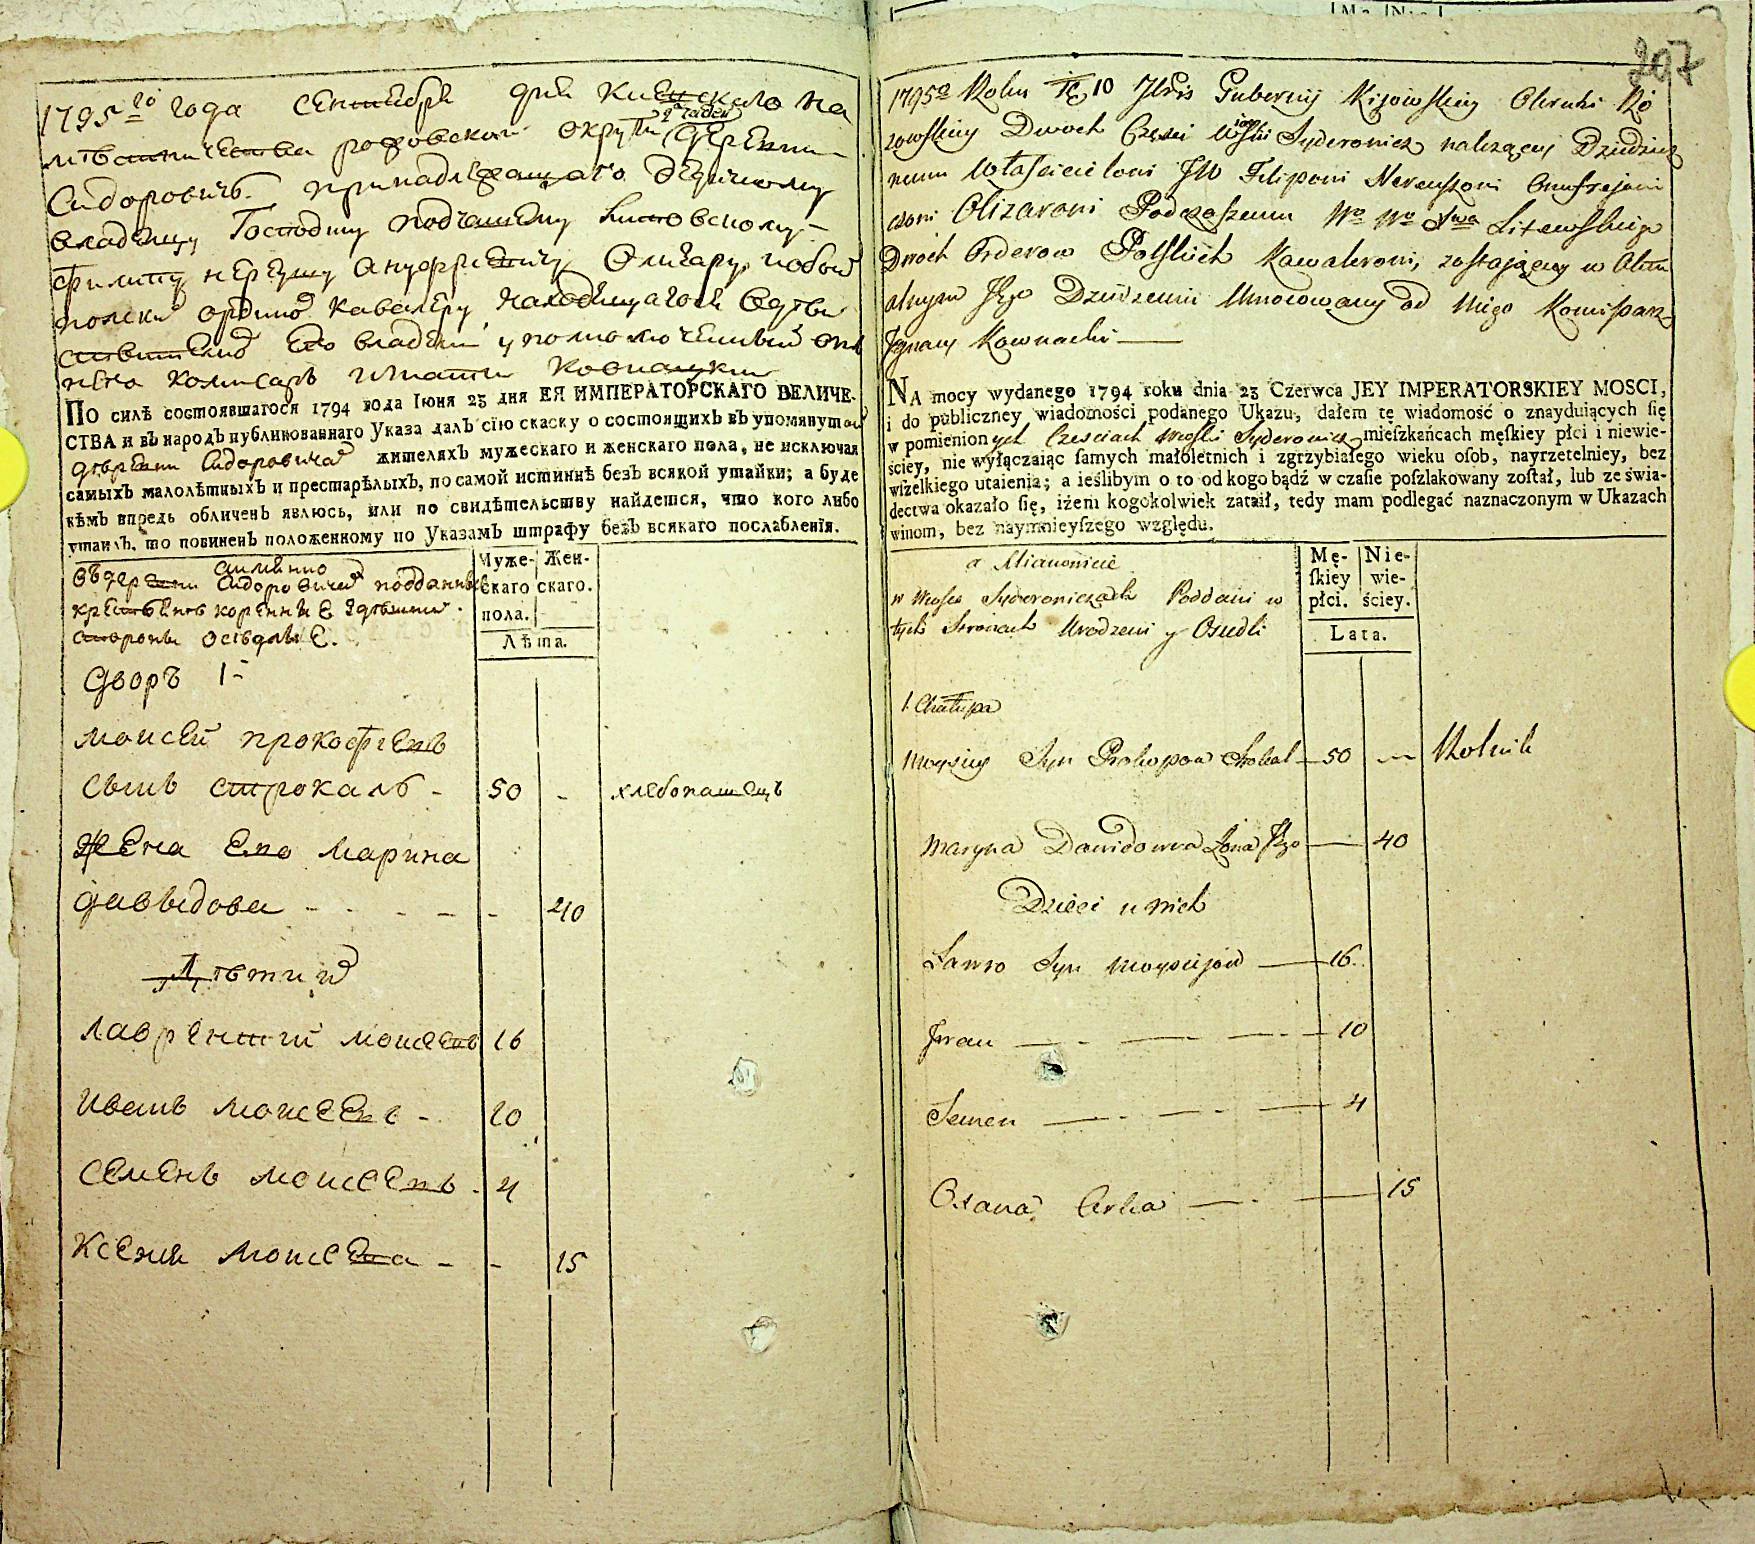 1795го года сентября дня Киевскаго на
мѣстничества рожовской округи 2х частей деревни
Сидоровичъ принадлежащаго дедичному
владелцу Господину подчашему Литовскому
Филипу Нереушу Ануфриевичу Олизару, обои
полски орднно Кавалеру, находящагося
его владени уполномоченный от
него комисаръ игнати Ковнацки
По силѣ состоявшагося 1794 года Iюня 23 дня ЕЯ ИМПЕРАТОРСКАГО ВЕЛИЧЕ-
СТВА и въ народъ публикованнаго Указа далъ сїю скаску о состоящихъ въ упомянутой
деревни Сидоровича жителяхъ мужескаго и женскаго пола, не исключая
самыхъ малолѣтныхъ и престарѣлыхъ, по самой истиннѣ безъ всякой утайки; а буде
кѣмъ впредь обличенъ явлюсь, или по свидѣтельству найдется, что кого либо
утаилъ, то повиненъ положенному по Указамъ штрафу безъ всякаго послабленїя.
аимянно
въ деревни Сидоровичи подданные
крестьяне коренные здешни
стороны оседлые.
Муже-скаго пола.
Жен-скаго.
Лѣта.
Дворъ 1й
Моисей прокофиевъ
сынъ строкалъ - 50 - хлебопашецъ
Жена ево Марина
давыдова - - - - - 40
Дѣти ихъ
Лаврентий моисеевъ 16
Иванъ моисеевъ - 10
Семенъ моисеевъ - 4
Ксения Моисеева - - 15
207
1795o Roku 10 Гubernij Kijowskiey Okruhi Ro
zowskiey Dwoch Części Wsiow Syderowicz nalezącey Dziedzicz
nemu Właścicielowi JW Filipowi Nereuszowi Onufrejowi
czowi Olizarowi Podczaszemu Wo Wo Xwa Litewskiego
Dwoch Orderow Polskich Kawalerowi, zostającey w Aktu
alnym Jego Dzierzeniu Umocowany od Niego Komisarz
Jgnacy Kownacki
NA mocy wydanego 1794 roku dnia 23 Czerwca JEY IMPERATORSKIEY MOSCI,
i do publiczney wiadomości podanego Ukazu, dałem tę wiadomość o znayduiących ſię
w pomienionych Czesciach Wsi Syderowicz mieſzkańcach męſkiey płci i niewie-
ściey, nie wyłączaiąc ſamych małoletnich i zgrzybiałego wieku oſob, nayrzetelniey, bez
wſzelkiego utaienia; a ieślibym o to od kogo bądź w czaſie poſzlakowany zoſtał, lub ze świa-
dectwa okazało ſię, iżem kogokolwiek zataił, tedy mam podlegać naznaczonym w Ukazach
winom, bez naymnieyſzego względu.
a Mianowicie
w Wsiach Syderowiczach Poddani w
tych Stronach Urodzeni y Osiedli
Mę-ſkiey płci.
Nie-wie-ściey.
Lata.
1. Chałupa
Moysiey Syn Prokopow Strokal 50 — Rolnik
Maryna Dawidowna Zona Jego — 40
Dzieci u nich
Lawro Syn Moysiejow — 16.
Jwan — 10
Semen — 4
Oxana Corka — 15